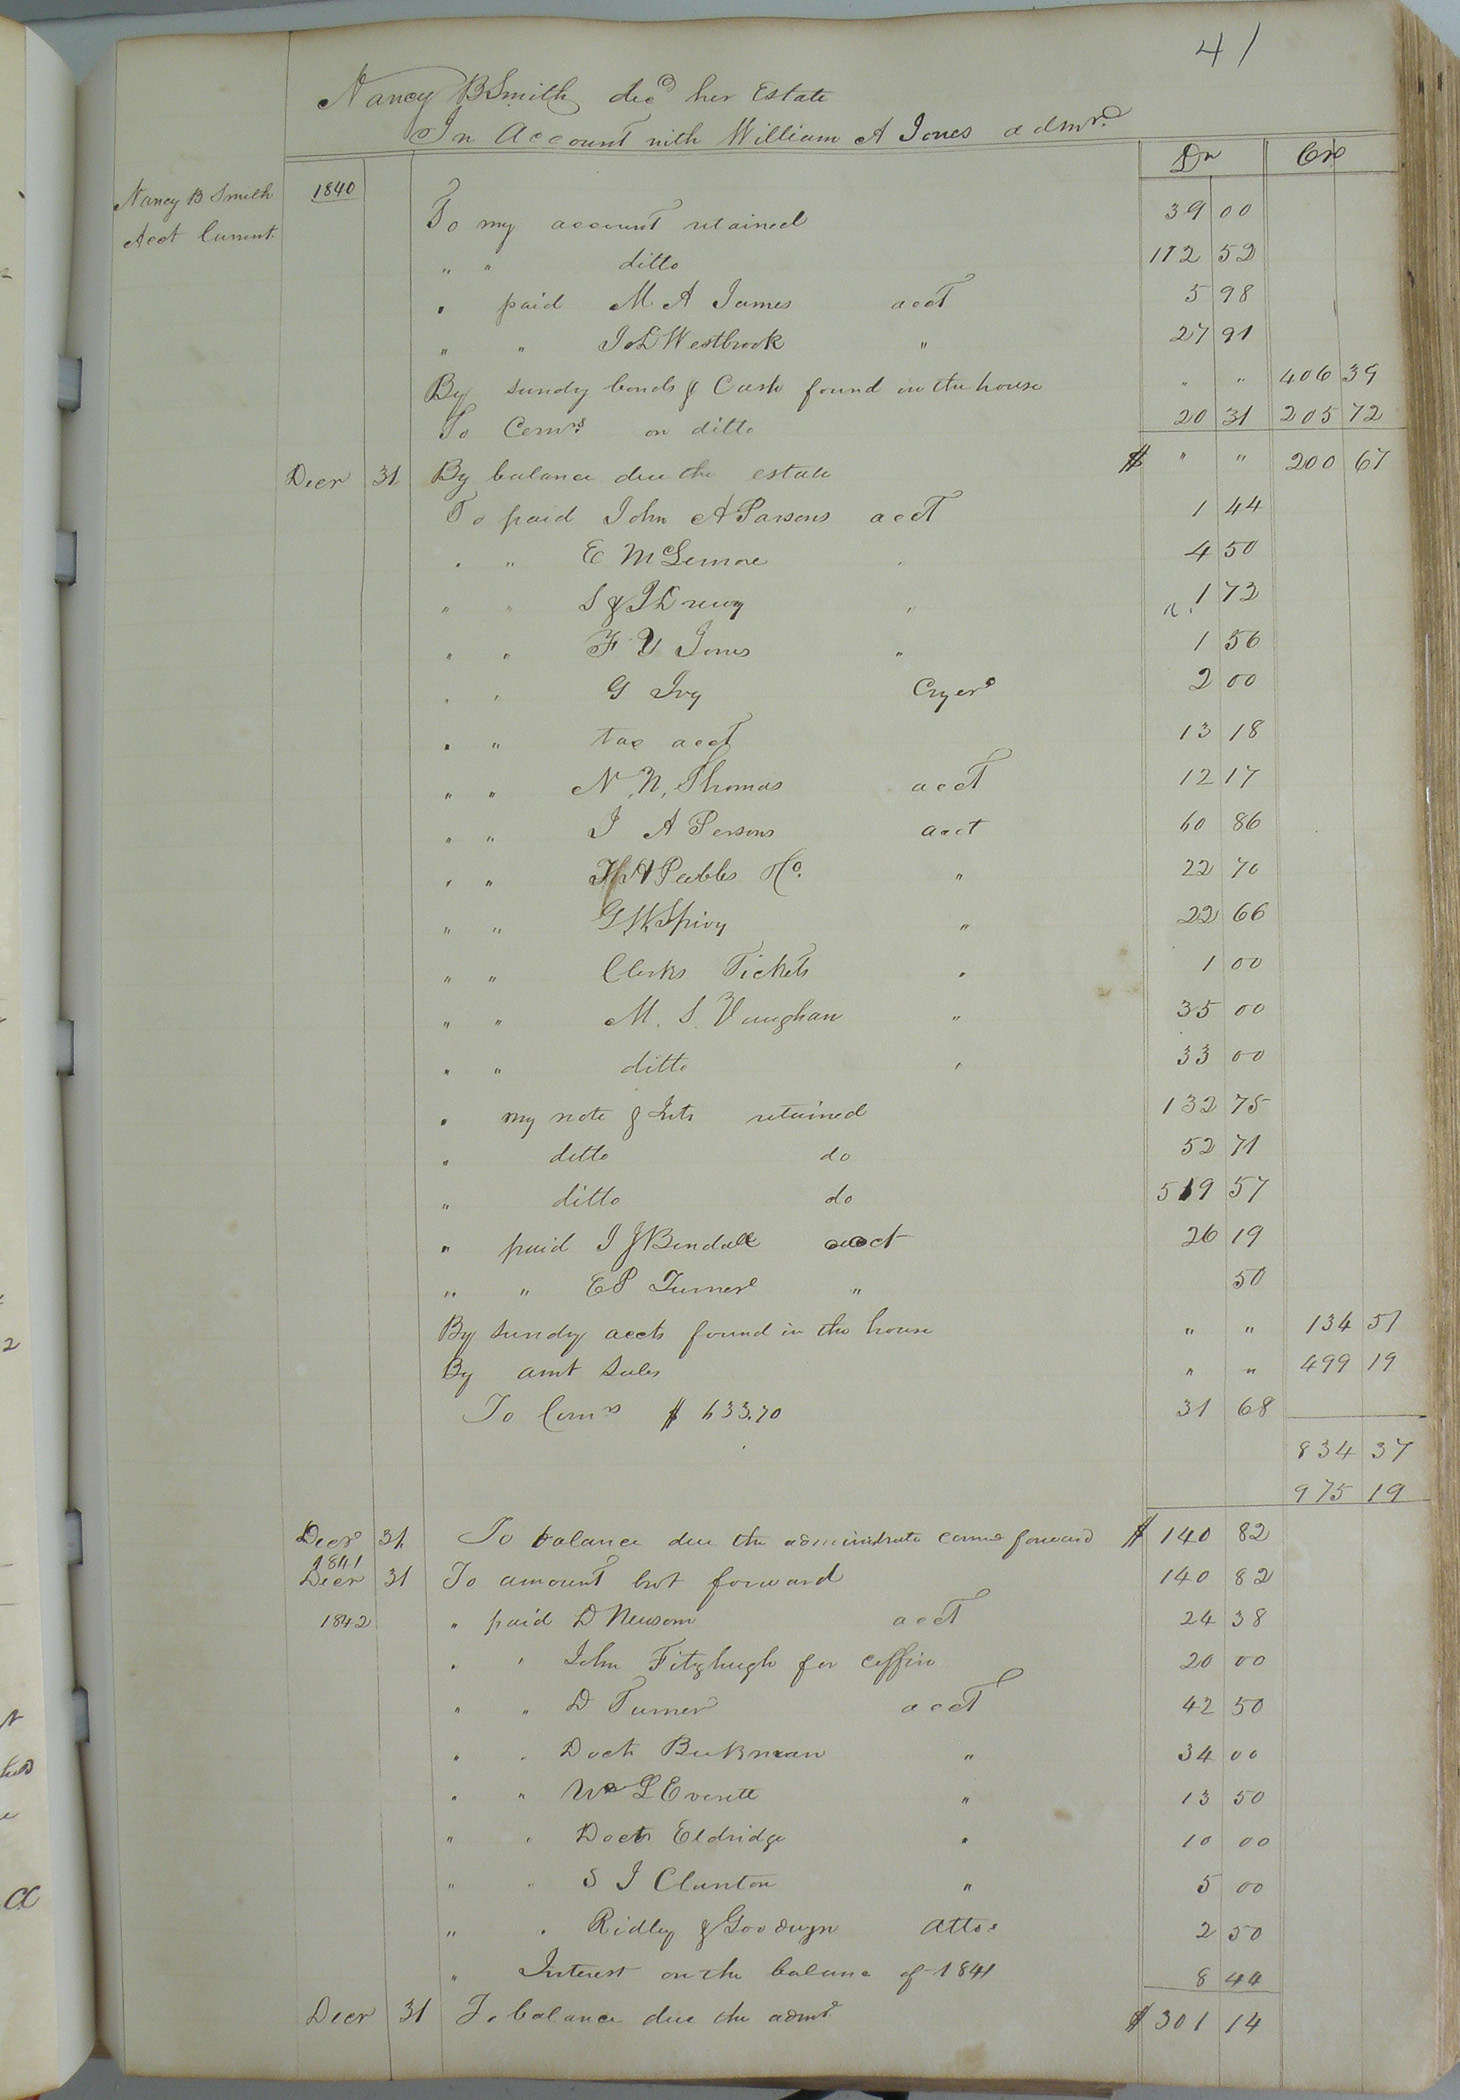 41
Nancy B Smith decd her Estate
In Account with William A Jones admr.
Dr Cr
Nancy B Smith
Acct Current.
1840
To my account retained 39 00
" " ditto 112 52
" paid M A James acct 5 98
" " J & L Westbrook " 27 91
By sundry bonds & Cash found in the house " " 406 39
To Comrs. on ditto 20 31 205 72
Decr 31 By balance due the estate $ " " 200 67
To paid John A Parsons acct 1 44
" " E McLemore " 4 50
" " S & J Drewry " 1 72
" " F Y Jones " 1 56
" " G Ivy Cryer 2 00
" " tax acct 13 18
" " N. N. Thomas acct 12 17
" " J A Persons acct 60 86
" " H A Peebles & Co. " 22 70
" " G W Spivy " 22 66
" " Clerks Tickets " 1 00
" " M. S. Vaughan " 35 00
" " ditto " 33 00
" my note & Ints retained 132 75
" ditto do 52 71
" ditto do 519 57
" paid J J Bendall acct 26 19
" " E P Turner " 50
By sundry accts found in the house " " 134 51
By amt sales " " 499 19
To Comrs $ 633.70 31 68
834 37
975 19
Decr 31 To balance due the administrator carried forward $ 140 82
1841
Decr 31 To amount brot forward 140 82
1842 " paid D Newsom acct 24 38
" " John Fitzhugh for coffin 20 00
" " D Turner acct 42 50
" " Doctr Beekman " 34 00
" " Wm L Everett " 13 50
" " Doctr Eldridge " 10 00
" " S J Clanton " 5 00
" " Ridley & Goodwyn attos 2 50
" Interest on the balance of 1841 8 44
Decr 31 To balance due the admr $ 301 14